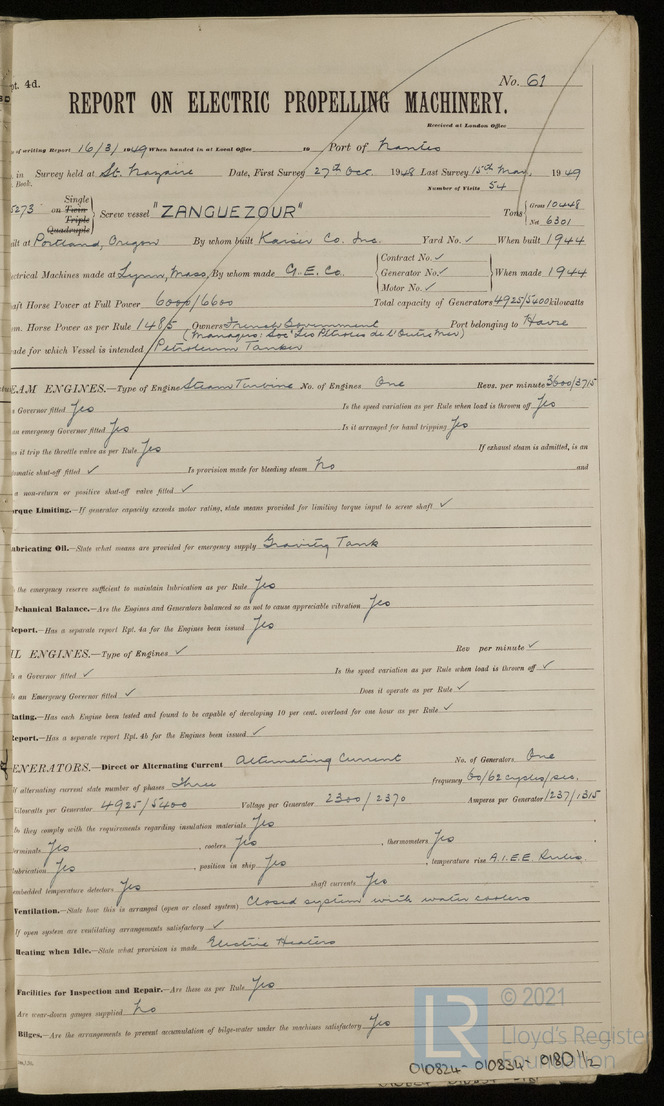 pt. 4d. No. 61
REPORT ON ELECTRIC PROPELLING MACHINERY.
Received at London Office
of writing Report 16/3/1949 When handed in at Local Office 19 Port of Nantes
in Survey held at St. Nazaire Date, First Survey 27th Oct. 1948 Last Survey 15th Mar, 1949
Book. Number of Visits 54
5273 on Single Twin Triple Quadruple } Screw vessel "ZANGUEZOUR" Tons { Gross 10448 Net 6301
uilt at Portland, Oregon By whom built Kaiser Co. Inc. Yard No. ✓ When built 1944
ectrical Machines made at Lynn, Mass, By whom made G.E. Co. { Contract No. ✓ Generator No. ✓ Motor No. ✓ } When made 1944
haft Horse Power at Full Power 6000/6600 Total capacity of Generators 4925/5400 kilowatts
om. Horse Power as per Rule 1485 Owners French Government Port belonging to Havre
(Managers: Soc. Les Pétroles de l'Outre Mer)
ade for which Vessel is intended Petroleum Tanker
EAM ENGINES.—Type of Engine Steam Turbine No. of Engines One Revs. per minute 3600/3715
a Governor fitted Yes Is the speed variation as per Rule when load is thrown off Yes
an emergency Governor fitted Yes Is it arranged for hand tripping Yes
es it trip the throttle valve as per Rule Yes If exhaust steam is admitted, is an
tomatic shut-off fitted ✓ Is provision made for bleeding steam No and
a non-return or positive shut-off valve fitted ✓
orque Limiting.—If generator capacity exceeds motor rating, state means provided for limiting torque input to screw shaft ✓
ubricating Oil.—State what means are provided for emergency supply Gravity Tank
the emergency reserve sufficient to maintain lubrication as per Rule Yes
echanical Balance.—Are the Engines and Generators balanced so as not to cause appreciable vibration Yes
eport.—Has a separate report Rpt. 4a for the Engines been issued Yes
IL ENGINES.—Type of Engines ✓ Rev per minute ✓
s a Governor fitted ✓ Is the speed variation as per Rule when load is thrown off ✓
an Emergency Governor fitted ✓ Does it operate as per Rule ✓
ating.—Has each Engine been tested and found to be capable of developing 10 per cent. overload for one hour as per Rule ✓
eport.—Has a separate report Rpt. 4b for the Engines been issued ✓
ENERATORS.—Direct or Alternating Current Alternating Current No. of Generators One
If alternating current state number of phases Three frequency 60/62 cycles/sec.
Kilowatts per Generator 4925/5400 Voltage per Generator 2300/2370 Amperes per Generator 1237/1315
Do they comply with the requirements regarding insulation materials Yes
terminals Yes , coolers Yes , thermometers Yes
lubrication Yes , position in ship Yes , temperature rise A.I.E.E. Rules.
embedded temperature detectors Yes shaft currents Yes
Ventilation.—State how this is arranged (open or closed system) Closed system with water coolers
If open system are ventilating arrangements satisfactory ✓
Heating when Idle.—State what provision is made Electric Heaters
Facilities for Inspection and Repair.—Are these as per Rule Yes
Are wear-down gauges supplied No
Bilges.—Are the arrangements to prevent accumulation of bilge-water under the machines satisfactory Yes
LR © 2021
Lloyd's Register
Foundation
010824-010834-0180 1/2